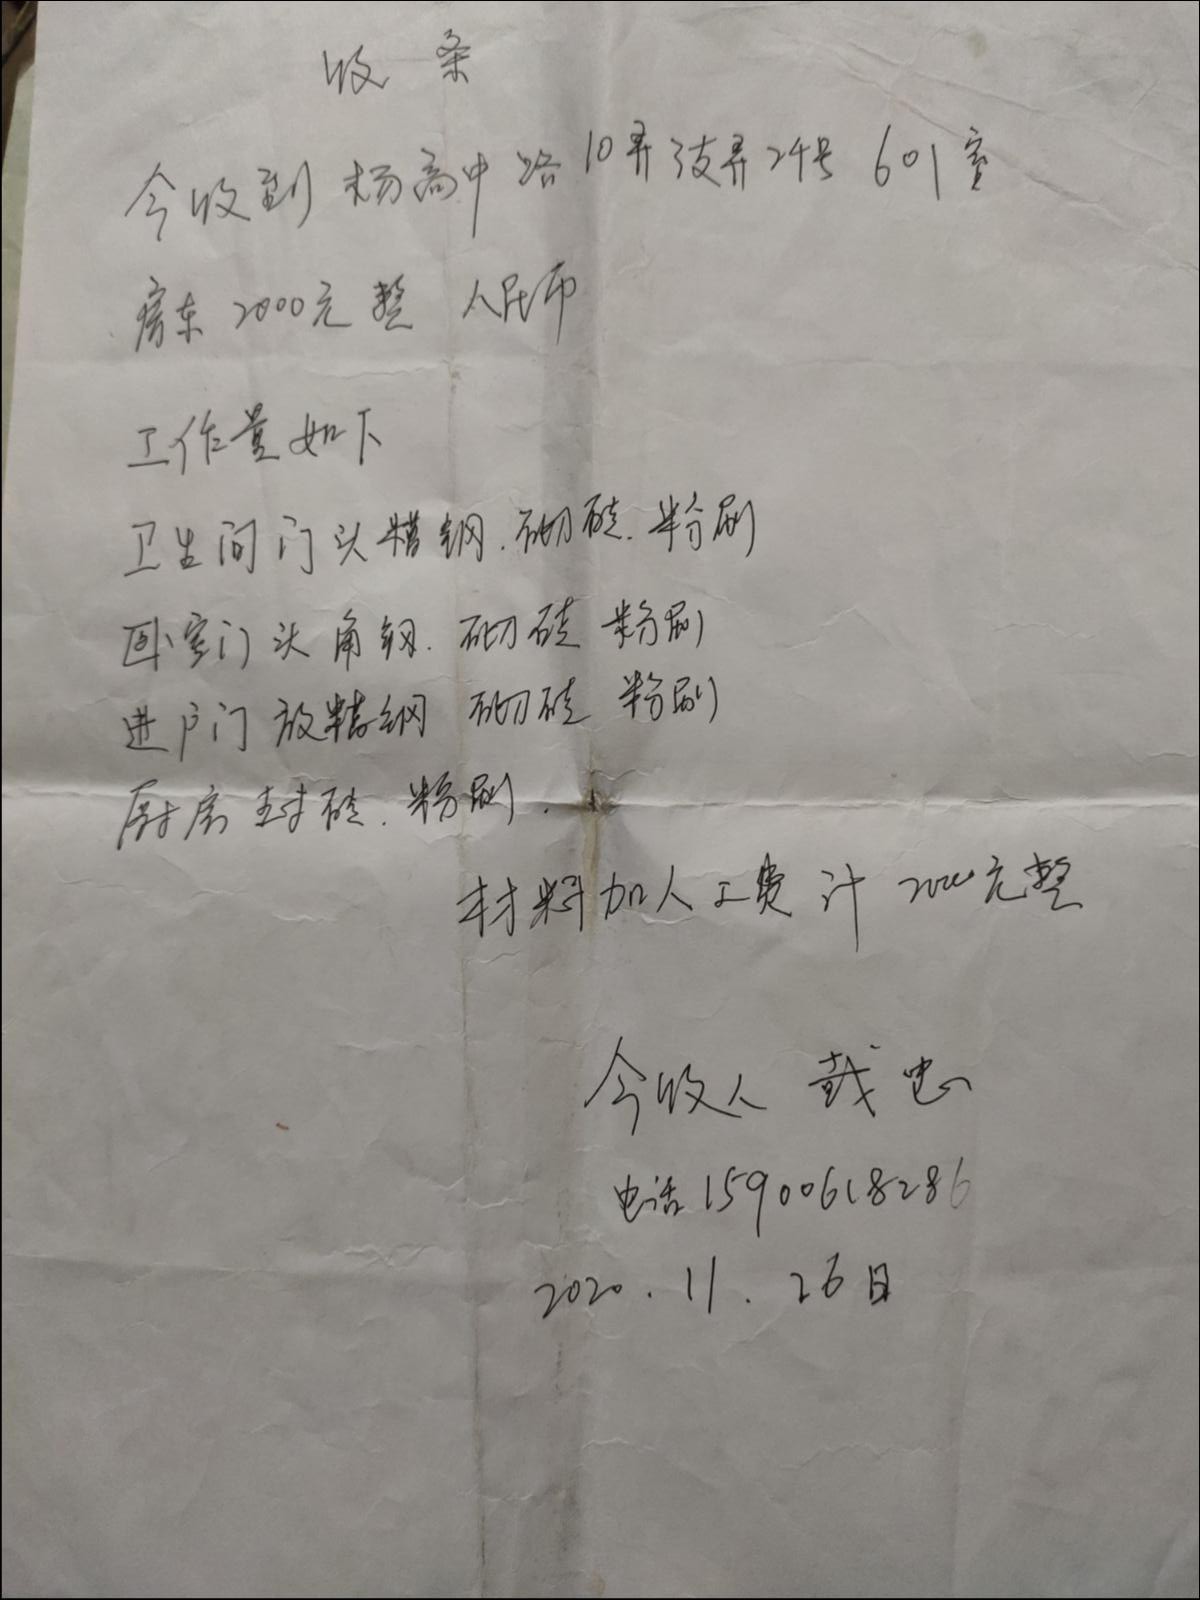 收条
今收到杨高中路10弄支弄24号601室
房东2000元整 人民币
工作量如下
卫生间门头槽钢.砌砖.粉刷
卧室门头角钢.砌砖 粉刷
进户门放槽钢 砌砖 粉刷
厨房封砖.粉刷.
材料加人工费计2000元整
今收人 戴忠
电话15900618286
2020.11.26日